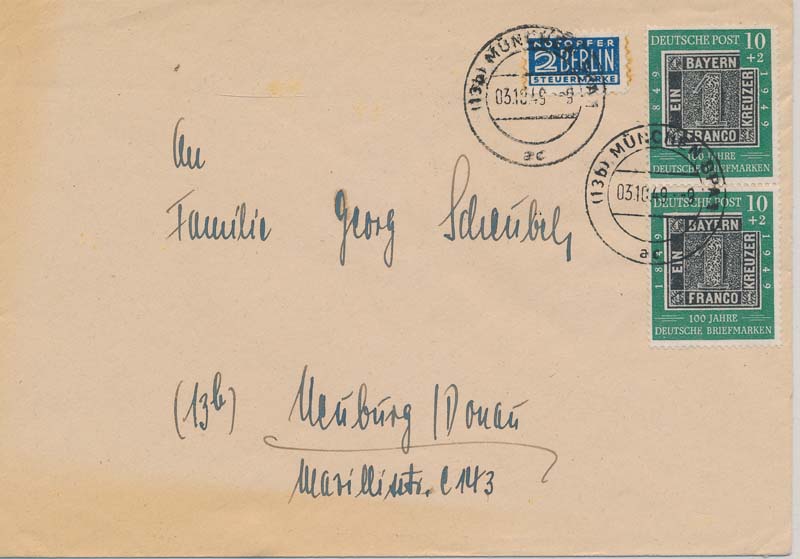 NOTOPFER
2 BERLIN
STEUERMARKE
(13b) MÜNCHEN
03.10.49 -9
ac
DEUTSCHE POST 10
+2
1849
1949
BAYERN
EIN
1
KREUZER
FRANCO
100 JAHRE
DEUTSCHE BRIEFMARKEN
(13b) MÜNCHEN
03.10.49 -9
ac
DEUTSCHE POST 10
+2
1849
1949
BAYERN
EIN
1
KREUZER
FRANCO
100 JAHRE
DEUTSCHE BRIEFMARKEN
An
Familie Georg Scheubel,
(13b) Neuburg / Donau
C 143